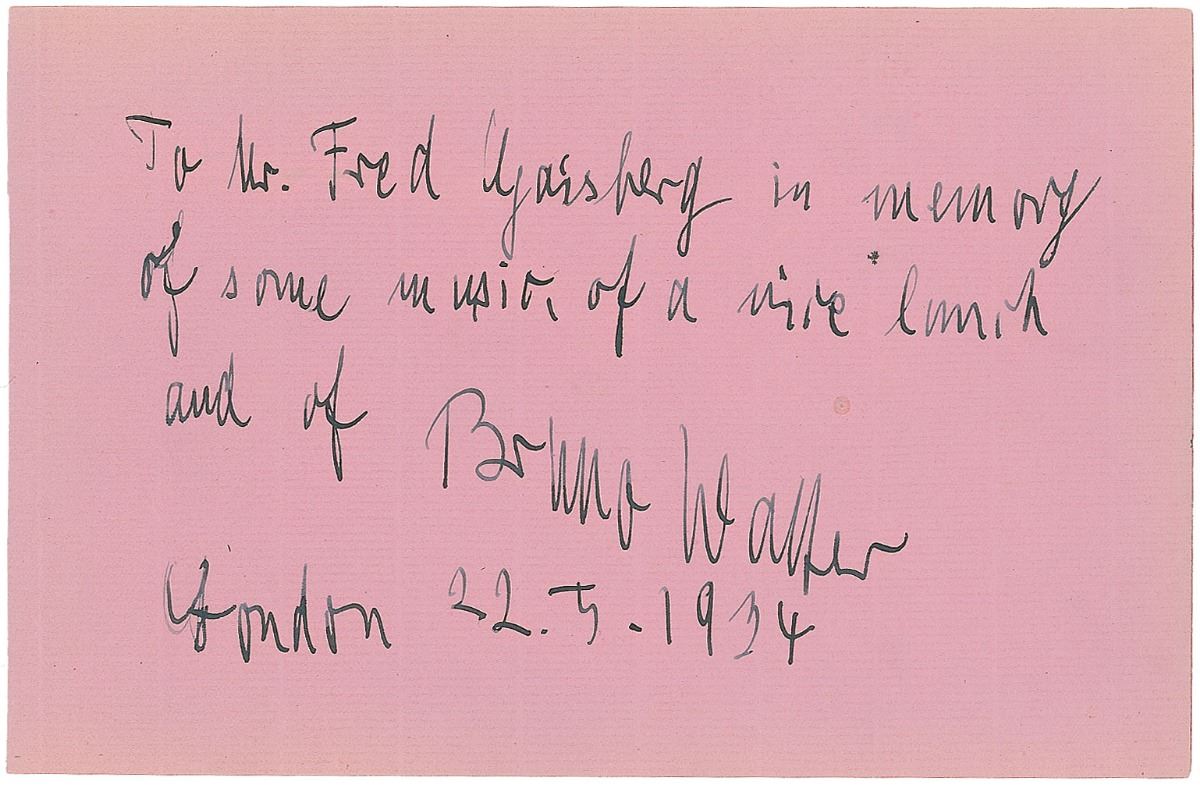 To Mr. Fred Gaisberg in memory
of some music, of a nice lunch
and of Bruno Walter
London 22.5.1934